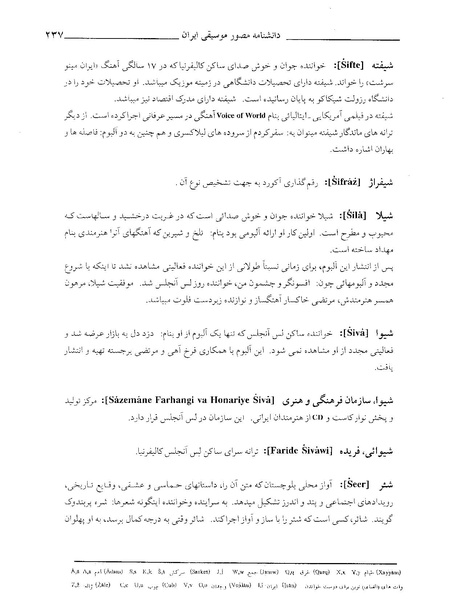 ۲۳۷ دانشنامه مصور موسیقی ایران
شیفته [Šifte]: خواننده جوان و خوش صدای ساکن کالیفرنیا که در ۱۷ سالگی آهنگ «ایران مینو
سرشت» را خواند. شیفته دارای تحصیلات دانشگاهی در زمینه موزیک میباشد. او تحصیلات خود را در
دانشگاه رزولت شیکاگو به پایان رسانیده است. شیفته دارای مدرک اقتصاد نیز میباشد.
شیفته در فیلمی آمریکایی ـ ایتالیائی بنام Voice of World آهنگی در مسیر عرفانی اجرا کرده است. از دیگر
ترانه های ماندگار شیفته میتوان به: سفر کردم از سروده های لیلا کسری و هم چنین به دو آلبوم: فاصله ها و
بهاران اشاره داشت.
شیفراژ [Šifrâž]: رقم گذاری آکورد به جهت تشخیص نوع آن.
شیلا [Šilâ]: شیلا خواننده جوان و خوش صدائی است که در غربت درخشید و سالهاست که
محبوب و مطرح است. اولین کار او ارائه آلبومی بود بنام: تلخ و شیرین که آهنگهای آنرا هنرمندی بنام
مهداد ساخته است.
پس از انتشار این آلبوم، برای زمانی نسبتاً طولانی از این خواننده فعالیتی مشاهده نشد تا اینکه با شروع
مجدد و آلبومهائی چون: افسونگر و چشمون من، خواننده روز لس آنجلس شد. موفقیت شیلا، مرهون
همسر هنرمندش، مرتضی خاکسار آهنگساز و نوازنده زبردست فلوت میباشد.
شیوا [Šivâ]: خواننده ساکن لس آنجلس که تنها یک آلبوم از او بنام: دزد دل به بازار عرضه شد و
فعالیتی مجدد از او مشاهده نمی شود. این آلبوم با همکاری فرخ آهی و مرتضی برجسته تهیه و انتشار
یافت.
شیوا، سازمان فرهنگی و هنری [Sâzemâne Farhangi va Honariye Šivâ]: مرکز تولید
و پخش نوار کاست و CD از هنرمندان ایرانی. این سازمان در لس آنجلس قرار دارد.
شیوائی، فریده [Faride Šivâwi]: ترانه سرای ساکن لس آنجلس کالیفرنیا.
شئر [Šeer]: آواز محلی بلوچستان که متن آن را، داستانهای حماسی و عشقی، وقایع تاریخی،
رویدادهای اجتماعی و پند و اندرز تشکیل میدهد. به سراینده و خواننده اینگونه شعرها: شرء پربندوک
گویند. شائر، کسی است که شئر را با ساز و آواز اجرا کند. شائر وقتی به درجه کمال برسد، به او پهلوان